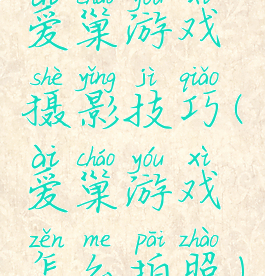 ài cháo yóu xì
爱巢游戏
shè yǐng jì qiǎo
摄影技巧(
ài cháo yóu xì
爱巢游戏
zěn me pāi zhào
怎么拍照)